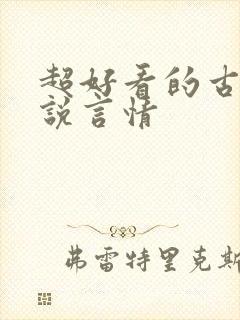 超好看的古
說言情
弗雷特里克斯